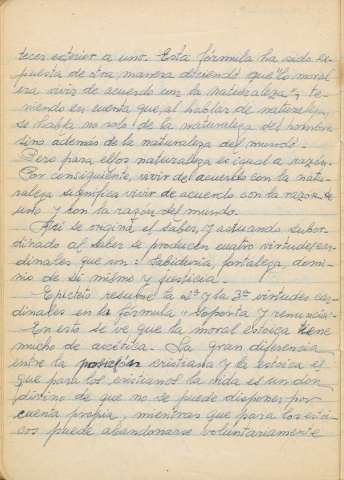 tecer exterior a uno. Esta fórmula ha sido ex-
puesta de otra manera diciendo que "lo moral
era vivir de acuerdo con la naturaleza"; te-
niendo en cuenta que, al hablar de naturaleza,
se habla no solo de la naturaleza del hombre
sino además de la naturaleza del mundo.
Pero para ellos naturaleza es igual a razón.
Por consiguiente, vivir de acuerdo con la natu-
raleza significa vivir de acuerdo con la razón de
uno y con la razón del mundo.
Así se origina el saber, y actuando subor-
dinado al saber se producen cuatro virtudes car-
dinales que son: sabiduría, fortaleza, domi-
nio de sí mismo y justicia.
Epicteto resume la 2ª y la 3ª virtudes car-
dinales en la fórmula "soporta y renuncia".
En esto se ve que la moral estoica tiene
mucho de ascética. La gran diferencia
entre la posición cristiana y la estoica es
que para los cristianos la vida es un don
divino de que no se puede disponer por
cuenta propia, mientras que para los estoi-
cos puede abandonarse voluntariamente